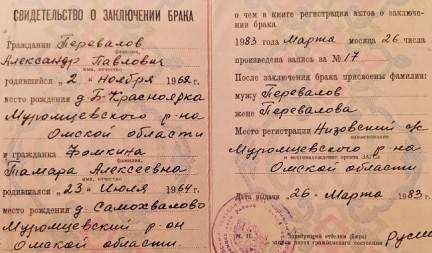 СВИДЕТЕЛЬСТВО О ЗАКЛЮЧЕНИИ БРАКА
Гражданин Перевалов
фамилия,
Александр Павлович
имя, отчество
родившийся „2" ноября 1962 г.
место рождения д. Б-Красноярка
Муромцевского р-на
Омской области
и гражданка Фомкина
фамилия,
Тамара Алексеевна
имя, отчество
родившаяся „23" Июля 1964 г.
место рождения д. Самохвалово
Муромцевский р-он
Омской области.
о чем в книге регистрации актов о заключе-
нии брака
1983 года Марта месяца 26 числа
произведена запись за № 17
После заключения брака присвоены фамилии:
мужу Перевалов
жене Перевалова
Место регистрации Низовский с/с
наименование
Муромцевского р-на
и местонахождение органа ЗАГСа
Омской области
Дата выдачи „26" Марта 1983 г.
М. П. Заведующий отделом (бюро)
записи актов гражданского состояния